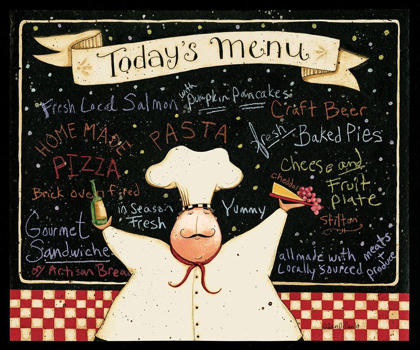 Today's Menu
Fresh Local Salmon
with Pumpkin Pancakes
Craft Beer
HOME MADE PASTA
fresh Baked Pies
PIZZA
Brick oven fired
Cheese and Fruit Plate
cheddar
Stilton
in Season Fresh
Yummy
Gourmet Sandwiche
on Artisan Brea
all made with Locally sourced meats produce